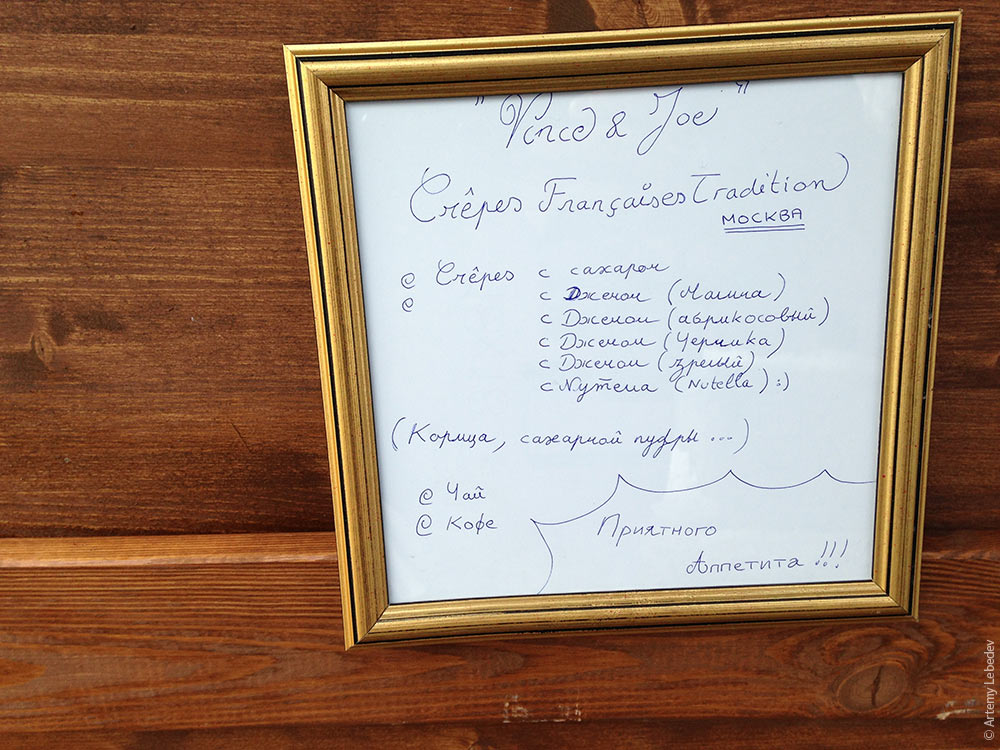 "Vince & Joe"
Crêpes Françaises Tradition
МОСКВА
@ Crêpes с сахаром
@ с Джемом (Малина)
с Джемом (абрикосовый)
с Джемом (Черника)
с Джемом (зрелый)
с Nутела (Nutella) :)
(Корица, сахарной пудры ...)
@ Чай
@ Кофе
Приятного
Аппетита !!!
© Artemy Lebedev